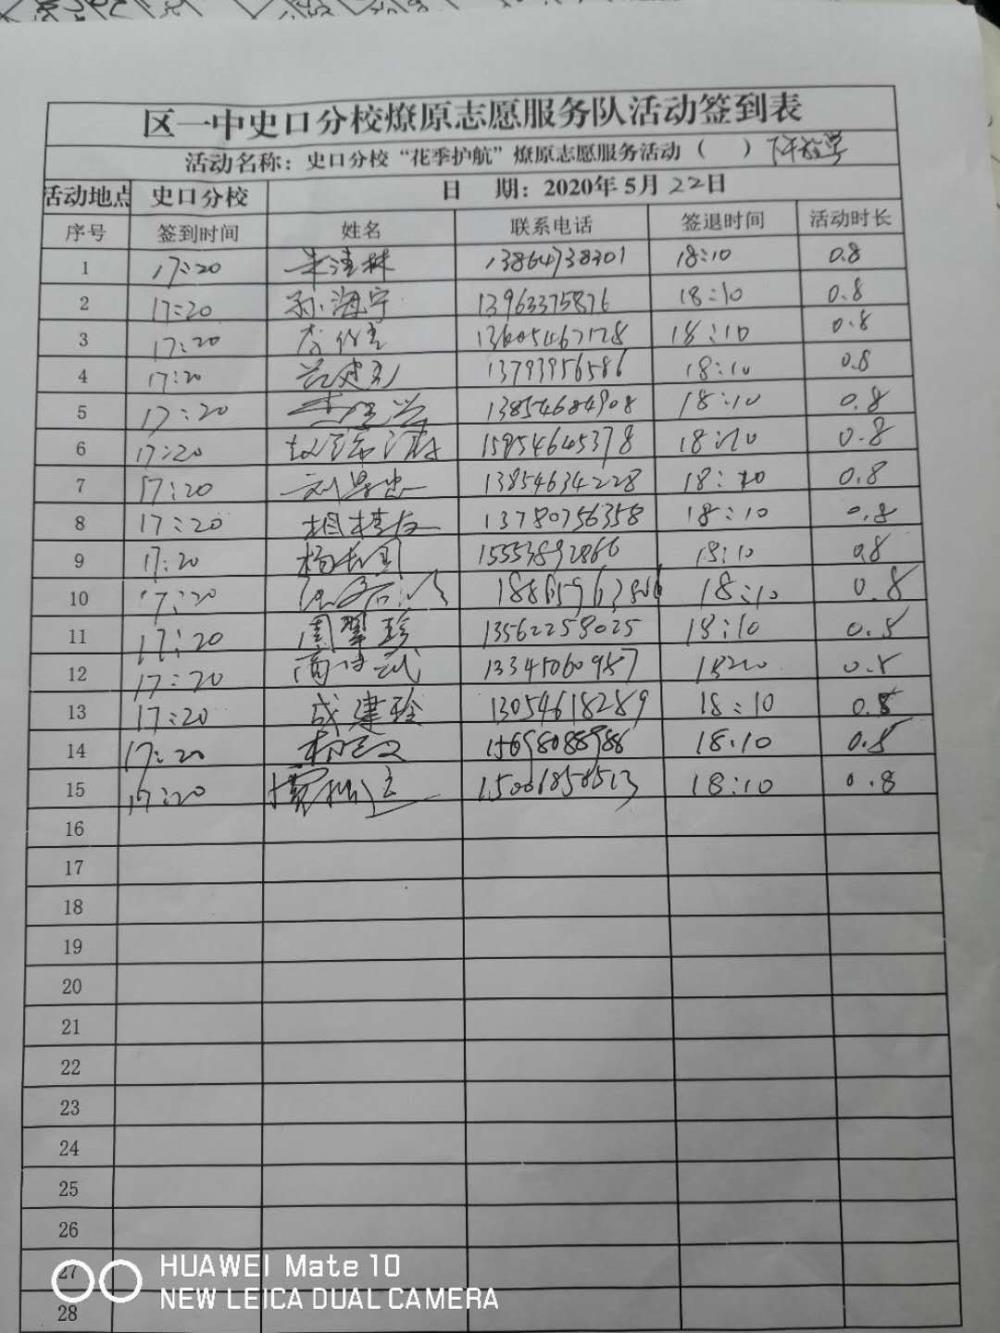 区一中史口分校燎原志愿服务队活动签到表
活动名称：史口分校“花季护航”燎原志愿服务活动（ ）下午放学
活动地点 史口分校 日 期：2020年5月22日
序号 签到时间 姓名 联系电话 签退时间 活动时长
1 17:20 13864738301 18:10 0.8
2 17:20 孙海宁 13963375876 18:10 0.8
3 17:20 13605467178 18:10 0.8
4 17:20 13793956586 18:10 0.8
5 17:20 13854684908 18:10 0.8
6 17:20 15954645378 18:10 0.8
7 17:20 13854634228 18:10 0.8
8 17:20 13780756358 18:10 0.8
9 17:20 15553892866 18:10 0.8
10 17:20 18:10 0.8
11 17:20 周翠珍 13562258025 18:10 0.8
12 17:20 13345060987 0.8
13 17:20 成建玲 13054618289 18:10 0.8
14 17:20 15698088988 18:10 0.8
15 17:20 15006850513 18:10 0.8
16
17
18
19
20
21
22
23
24
25
26
27
28
HUAWEI Mate 10
NEW LEICA DUAL CAMERA